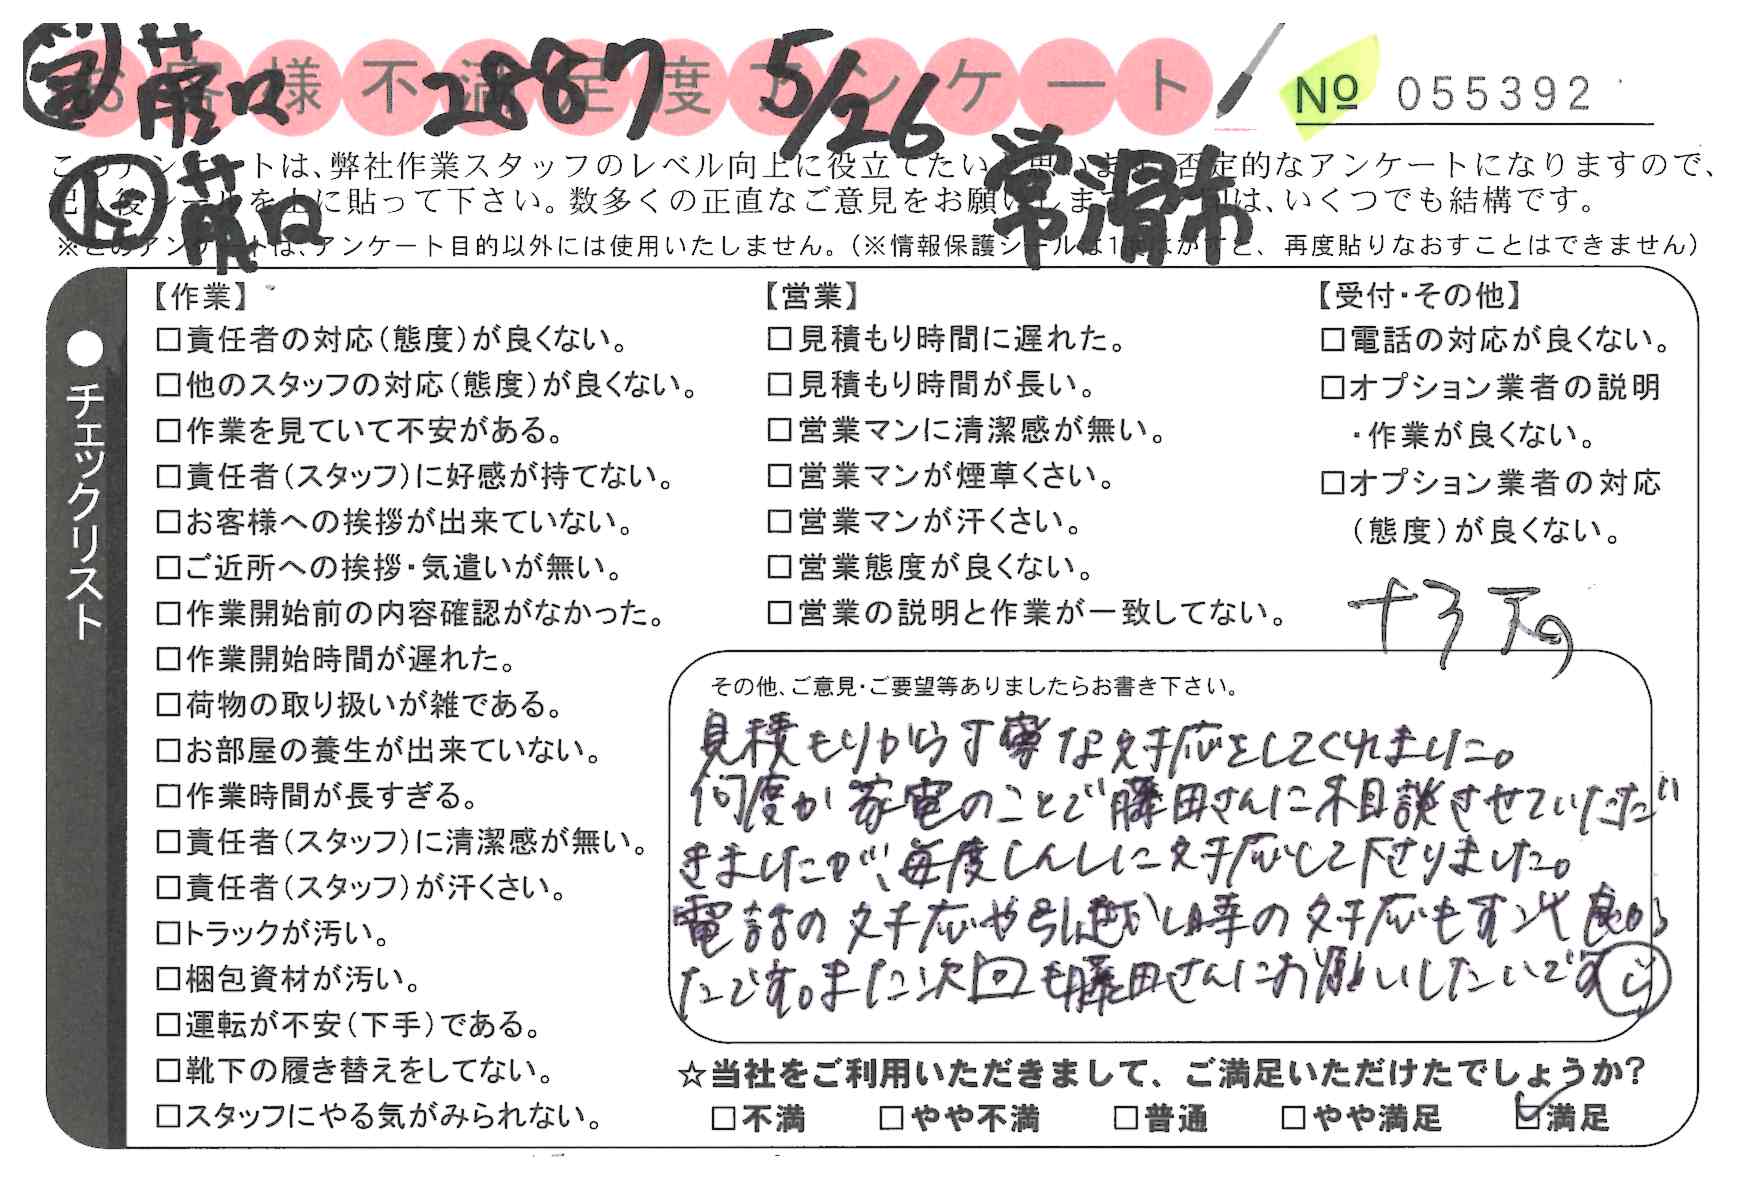 お客様不満足度アンケート
2887 5/26
№ 055392
常滑市
このアンケートは、弊社作業スタッフのレベル向上に役立てたいと思います。否定的なアンケートになりますので、
記入後シールを上に貼って下さい。数多くの正直なご意見をお願いします。は、いくつでも結構です。
※このアンケートは、アンケート目的以外には使用いたしません。(※情報保護シールは1度はがすと、再度貼りなおすことはできません)
●チェックリスト
【作業】
□責任者の対応(態度)が良くない。
□他のスタッフの対応(態度)が良くない。
□作業を見ていて不安がある。
□責任者(スタッフ)に好感が持てない。
□お客様への挨拶が出来ていない。
□ご近所への挨拶・気遣いが無い。
□作業開始前の内容確認がなかった。
□作業開始時間が遅れた。
□荷物の取り扱いが雑である。
□お部屋の養生が出来ていない。
□作業時間が長すぎる。
□責任者(スタッフ)に清潔感が無い。
□責任者(スタッフ)が汗くさい。
□トラックが汚い。
□梱包資材が汚い。
□運転が不安(下手)である。
□靴下の履き替えをしてない。
□スタッフにやる気がみられない。
【営業】
□見積もり時間に遅れた。
□見積もり時間が長い。
□営業マンに清潔感が無い。
□営業マンが煙草くさい。
□営業マンが汗くさい。
□営業態度が良くない。
□営業の説明と作業が一致してない。
【受付・その他】
□電話の対応が良くない。
□オプション業者の説明
・作業が良くない。
□オプション業者の対応
(態度)が良くない。
その他、ご意見・ご要望等ありましたらお書き下さい。
見積もりから丁寧な対応をしてくれました。
何度か家電のことで藤田さんに相談させていただ
きましたが、毎度しんしに対応して下さりました。
電話の対応や引越し時の対応もすごく良かっ
たです。また次回も藤田さんにお願いしたいです
☆当社をご利用いただきまして、ご満足いただけたでしょうか?
□不満 □やや不満 □普通 □やや満足 ☑満足